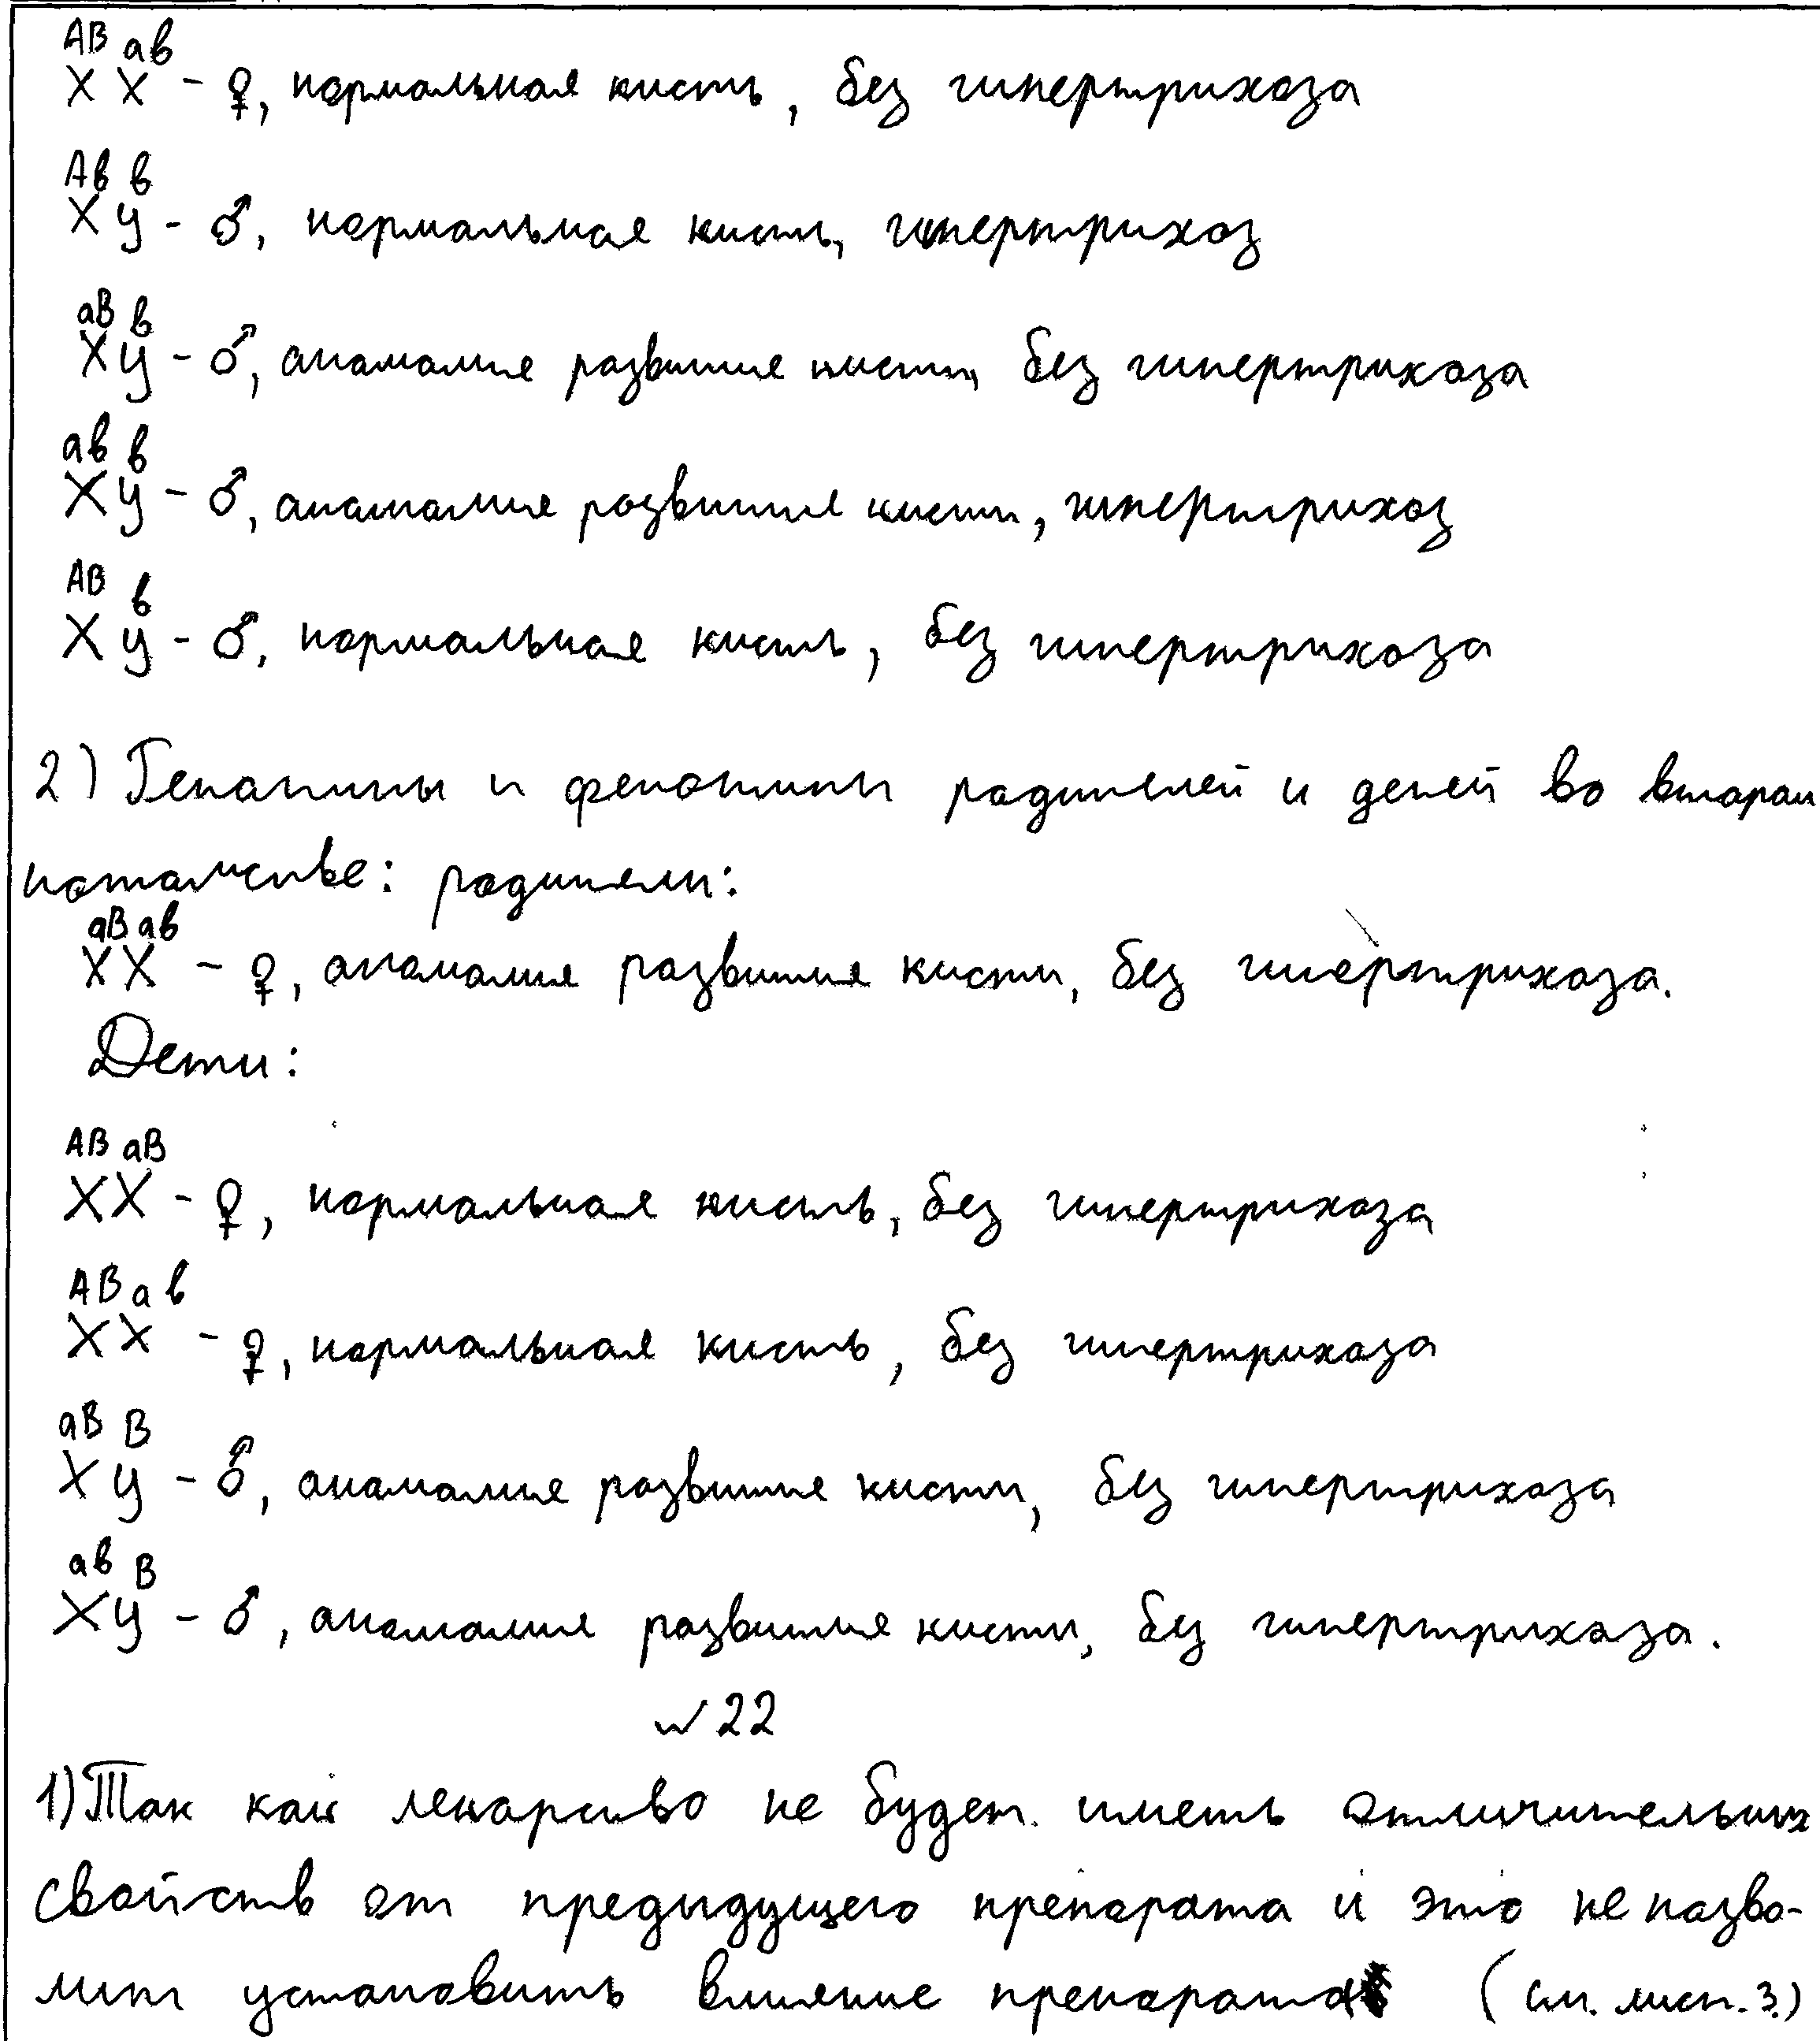 AB ав
X X - ♀, нормальная кисть, без гипертрихоза
Ав в
X У - ♂, нормальная кисть, гипертрихоз
аВ в
X У - ♂, анамалия развитие кисти, без гипертрихоза
ав в
X У - ♂, анамалия развитие кисти, гипертрихоз
AB в
X У - ♂, нормальная кисть, без гипертрихоза
2) Генатипы и фенотипы радителей и детей во втаром
потамстве: радители:
аВ ав
X X - ♀, анамалия развития кисти, без гипертрихоза.
Дети:
AB аВ
X X - ♀, нормальная кисть, без гипертрихоза
AB ав
X X - ♀, нормальная кисть, без гипертрихоза
аВ В
X У - ♂, анамалия развитие кисти, без гипертрихоза
ав В
X У - ♂, анамалия развития кисти, без гипертрихоза.
№22
1) Так как лекарство не будет иметь отличительных
свойств от предыдущего препарата и это не позво-
лит установить влияние препарата (см. лист. 3.)